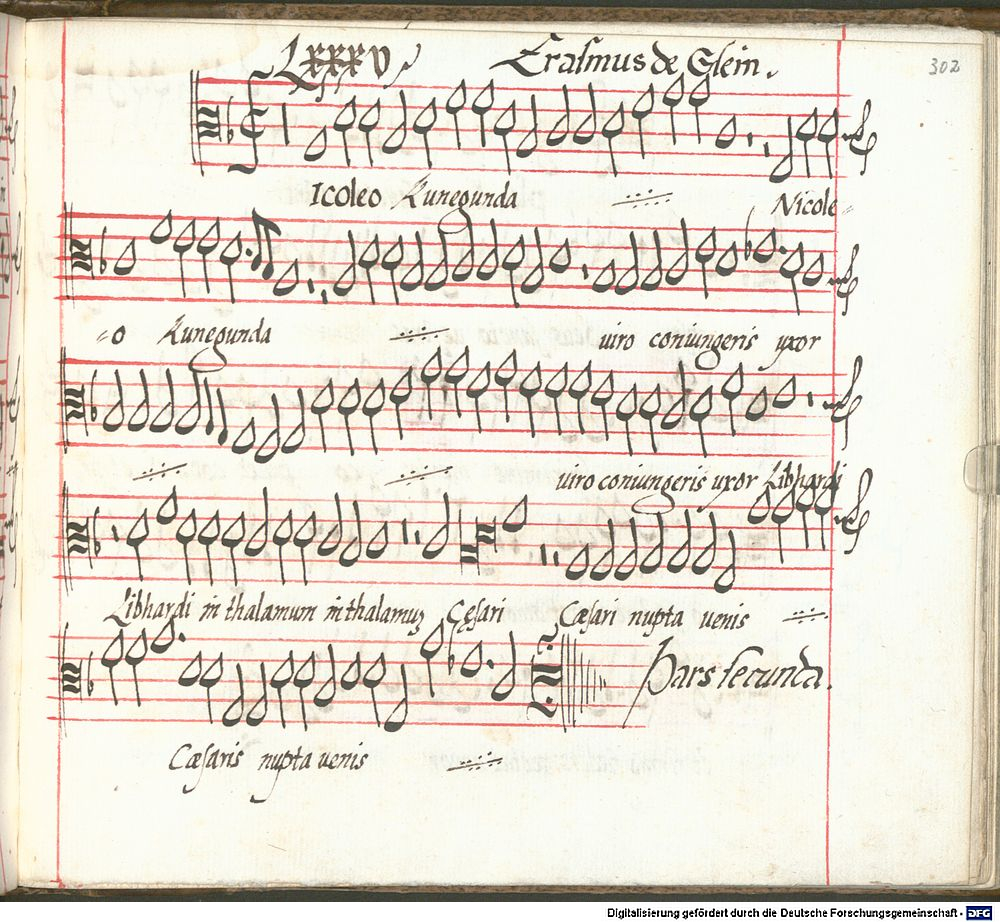 Lxxxv Erasmus de Glein. 302
Icoleo Kunegunda Nicole=
=o Kunegunda viro coniungeris vxor
viro coniungeris vxor Libhardi
Libhardi in thalamum in thalamuʒ Cęsari Cæsari nupta venis
Cæsaris nupta venis
Pars secunda.
Digitalisierung gefördert durch die Deutsche Forschungsgemeinschaft - DFG